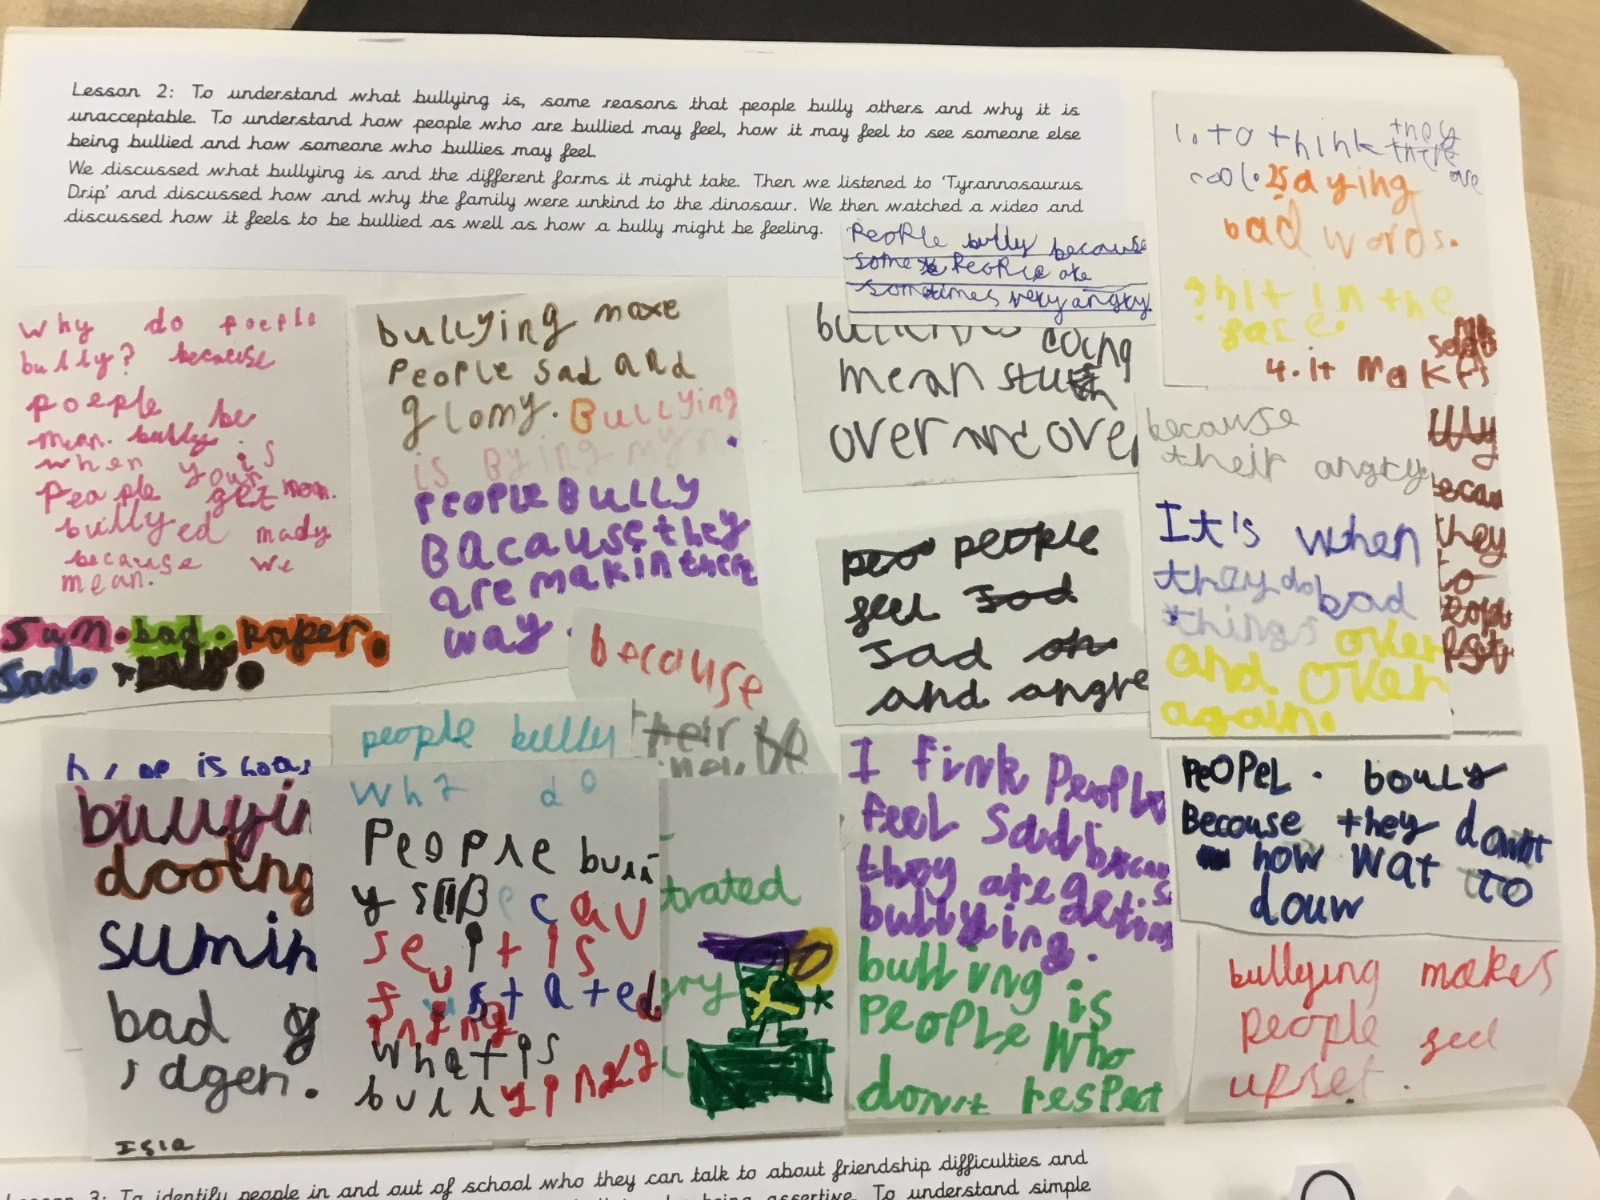 Lesson 2: To understand what bullying is, some reasons that people bully others and why it is
unacceptable. To understand how people who are bullied may feel, how it may feel to see someone else
being bullied and how someone who bullies may feel.
We discussed what bullying is and the different forms it might take. Then we listened to 'Tyrannosaurus
Drip' and discussed how and why the family were unkind to the dinosaur. We then watched a video and
discussed how it feels to be bullied as well as how a bully might be feeling.
People bully because
some People are
sometimes very angry
1. to think they
there are
cool. 2 saying
bad words.
hit in the
face
4. it makes
why do poeple
bully? because
poeple be
mean. bully is
when your
People get mean.
bullyed mady
because we
mean.
sum. bad. paper.
sad.
bullying maxe
People sad and
glomy. Bullying
is
PEOPLE BULLY
BACAUSE they
are makin there
way.
doing
mean stuff
over and over
people
feel sad
sad or
and angre
because
their angry
It's when
they do bad
things over
and over
again.
they
to
because
their
people bully
bullyin
dooing
sumin
bad
dgen.
Isla
what do
People bull
ys Becau
se it is
frustated
what is
bullying
trated
gry
I fink People
feel sad becau
they are geting
bullying.
bulling is
People who
donnt respect
PeOPeL. bouly
Because they donnt
how wat to
douw
bullying makes
People feel
upset.
Lesson 3: To identify people in and out of school who they can talk to about friendship difficulties and
being assertive. To understand simple